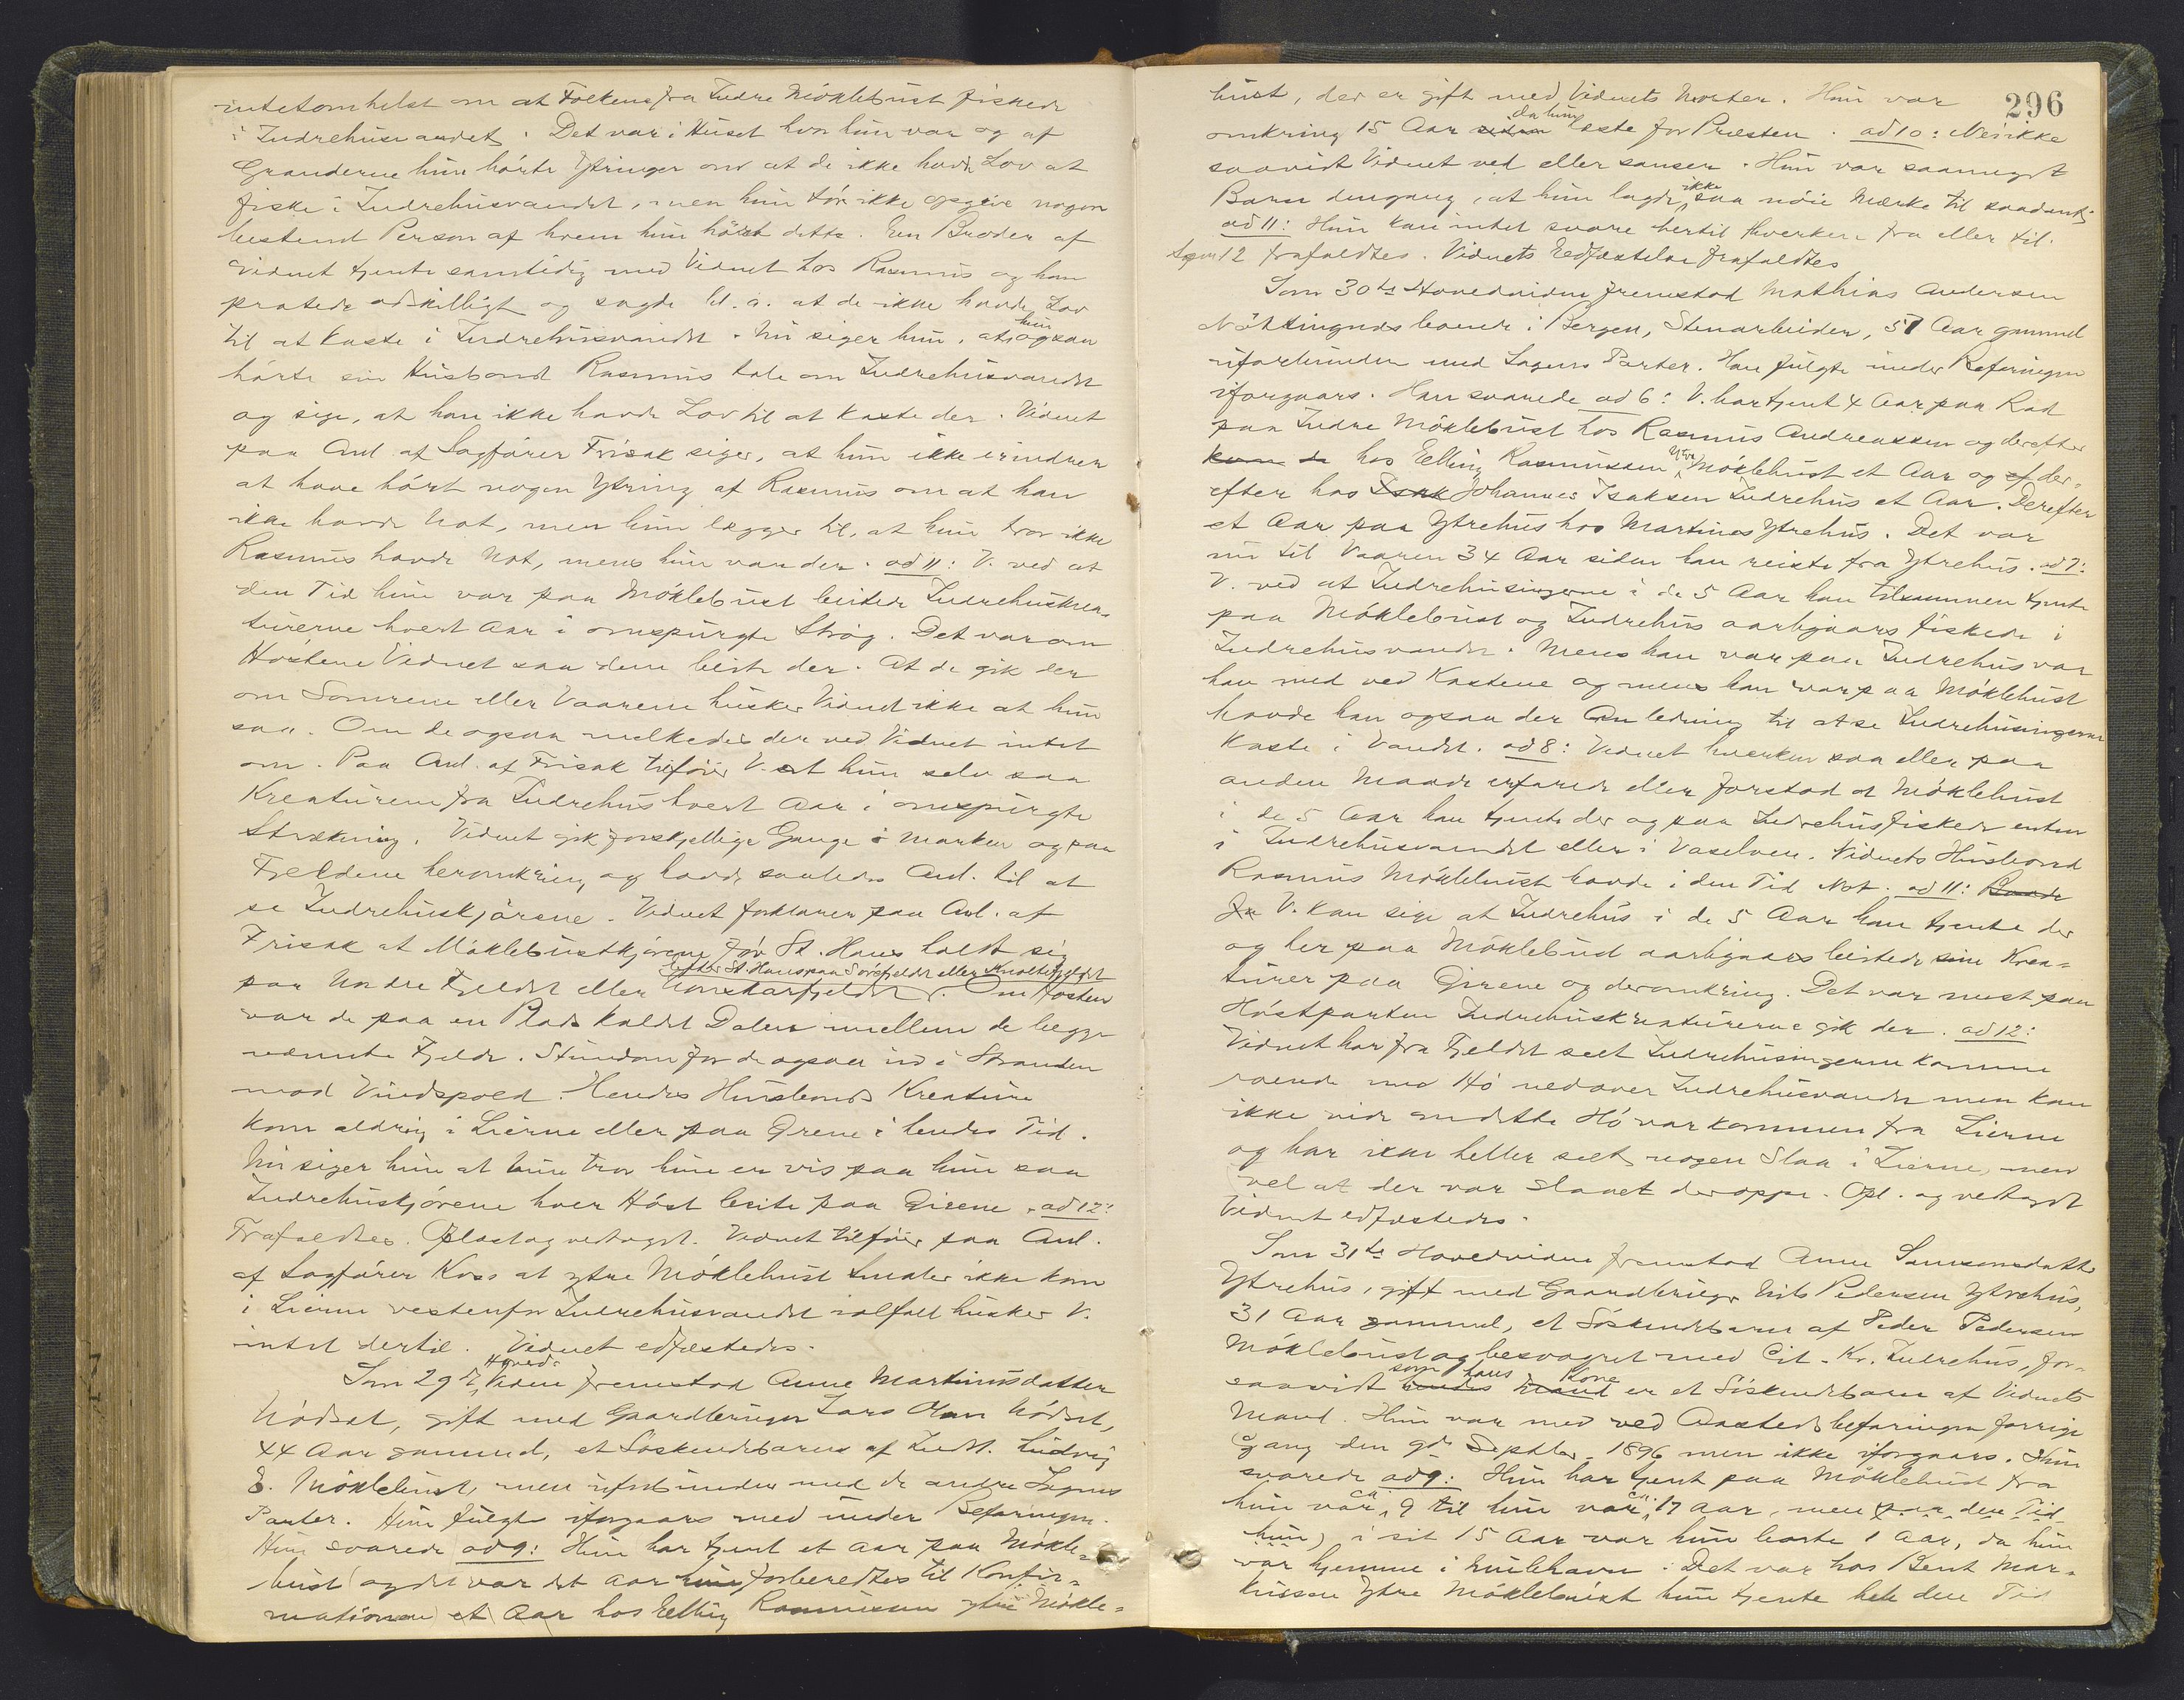 intetsomhelst om at Folkene fra Indre Möklebust fiskede
i Indrehusvandet. Det var i Huset hvor hun var og af
Granderne hun hörte Ytringer om at de ikke havde Lov at
fiske i Indrehusvandet, men hun tör ikke opgive nogen
bestemt Person af hvem hun hört dette. En Broder af
Vidnet tjente samtidig med Vidnet hos Rasmus og han
pratede adskilligt og sagde bl. a. at de ikke havde Lov
til at kaste i Indrehusvandet. Nu siger hun, at hun ogsaa
hörte sin Husbond Rasmus tale om Indrehusvandet
og sige, at han ikke havde Lov til at kaste der. Vidnet
paa Anl. af Sagförer Frisak siger, at hun ikke erindrer
at have hört nogen Ytring af Rasmus om at han
ikke havde Not, men hun lægger til, at hun tror ikke
Rasmus havde Not, mens hun var der. ad 11: V. ved at
den Tid hun var paa Möklebust beitede Indrehuskrea-
turerne hvert Aar i omspurgte Strög. Det var om
Höstene Vidnet saa dem beite der. At de gik der
om Somrene eller Vaarene husker Vidnet ikke at hun
saa. Om de ogsaa melkedes der ved Vidnet intet
om. Paa Anl. af Frisak tilföier V. at hun selv saa
Kreaturene fra Indrehus hvert Aar i omspurgte
Strækning. Vidnet gik forskjellige Gange i Marken og paa
Fjeldene heromkring og havde saaledes Anl. til at
se Indrehuskjörene. Vidnet forklarer paa Anl. af
Frisak at Möklebustkjörene för St. Hans holdt sig
efter St. Hans paa Sörefjeldet eller Knoltefjeldet
paa Nordre Fjeldet eller fjeldet. Om Hösten
var de paa en Plads kaldet Dalen imellem de begge
nævnte Fjelde. Stundom for de ogsaa ind i Stranden
mod Vindspold. Hendes Husbonds Kreature
kom aldrig i Lierne eller paa Girene i hendes Tid.
Nu siger hun at hun tror hun er vis paa hun saa
Indrehuskjörene hver Höst beite paa Girene. ad 12:
Frafaldtes. Oplæst og vedtaget. Vidnet tilföier paa Anl.
af Sagförer Koss at ytre Möklebust Smaler ikke kom
i Lierne vestenfor Indrehusvandet ialfald husker V.
intet dertil. Vidnet edfæstedes.
Som 29de Hovedvidne fremstod Anne Martinusdatter
Nödset, gift med Gaardbruger Lars Olsen Nödset,
44 Aar gammel, et Söskendebarn af Indst. Ludvig
E. Möklebust, men uforbunden med de andre Sagens
Parter. Hun fulgte iforgaars med under Befaringen.
Hun svarede ad 9: Hun har tjent et Aar paa Mökle-
bust (og det var det Aar hun forberedtes til Konfir-
mationen) et Aar hos Elling Rasmussen ytre Mökle-
296
bust, der er gift med Vidnets Moster. Hun var
omkring 15 Aar da hun læste for Præsten. ad 10: Nei ikke
saavidt Vidnet ved eller sanser. Hun var saameget
Barn dengang, at hun lagde ikke saa nöie Mærke til saadant.
ad 11: Hun kan intet svare hertil hverken fra eller til.
Spm 12 frafaldtes. Vidnets Edfæstelse frafaldtes
Som 30te Hovedvidne fremstod Mathias Andersen
Nöttingnes boende i Bergen, Stenarbeider, 57 Aar gammel
uforbunden med Sagens Parter. Han fulgte under Befaringen
iforgaars. Han svarede ad 6: V. har tjent 4 Aar paa Rad
paa Indre Möklebust hos Rasmus Andreassen og derefter
kom de hos Elling Rasmussen ytre Möklebust et Aar og af der-
efter hos Isak Johannes Isaksen Indrehus et Aar. Derefter
et Aar paa Ytrehus hos Martines Ytrehus. Det var
nu til Vaaren 34 Aar siden han reiste fra Ytrehus. ad 7:
V. ved at Indrehusingerne i de 5 Aar han tilsammen tjente
paa Möklebust og Indrehus aarligaars fiskede i
Indrehusvandet. Mens han var paa Indrehus var
han med ved Kastene og mens han var paa Möklebust
havde han ogsaa der Anledning til at se Indrehusingerne
kaste i Vandet. ad 8: Vidnet hverken saa eller paa
anden Maade erfarede eller forstod at Möklebust
i de 5 Aar han tjente der og paa Indrehus fiskede enten
i Indrehusvandet eller i Vaselven. Vidnets Husbond
Rasmus Möklebust havde i den Tid Not. ad 11: Baade
Ja V. kan sige at Indrehus i de 5 Aar han tjente der
og her paa Möklebust aarligaars beitede sine Krea-
turer paa Girene og deromkring. Det var mest paa
Höstparten Indrehuskreaturerne gik der. ad 12:
Vidnet har fra Fjeldet seet Indrehusingerne komme
roende med Hö nedover Indrehusvandet men kan
ikke vide om dette Hö var kommen fra Lierne
og har ikke heller seet nogen Slaa i Lierne, men
vel at der var slaaet deroppe. Opl. og vedtaget
Vidnet edfæstedes.
Som 31te Hovedvidne fremstod Anne Samsonsdatter
Ytrehus, gift med Gaardbruger Nils Pedersen Ytrehus,
31 Aar gammel, et Söskendebarn af Peder Pedersen
Möklebust og besvogret med Cit. Kr. Indrehus, for-
saavidt som hans Kone hendes Mand er et Söskendebarn af Vidnets
Mand. Hun var med ved Aastedsbefaringen forrige
Gang den 9de Septbr. 1896 men ikke iforgaars. Hun
svarede ad 9: Hun har tjent paa Möklebust fra
hun var ca. 9 til hun var ca. 17 Aar, men paa den Tid
hun, i sit 15 Aar var hun borte 1 Aar, da hun
var hjemme i . Det var hos Bent Mar-
kussen Ytre Möklebust hun tjente hele den Tid